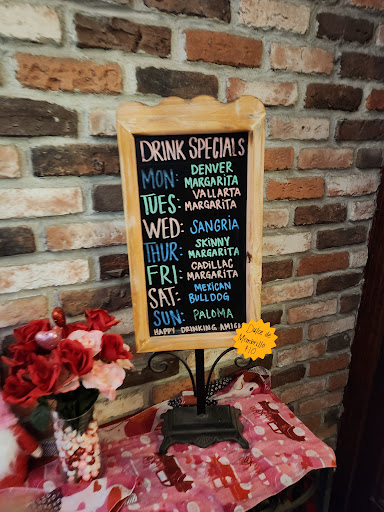 DRINK SPECIALS
MON: DENVER
MARGARITA
TUES: VALLARTA
MARGARITA
WED: SANGRIA
THUR: SKINNY
MARGARITA
FRI: CADILLAC
MARGARITA
SAT: MEXICAN
BULLDOG
SUN: PALOMA
HAPPY DRINKING AMIGO
de
Membrillo
$10